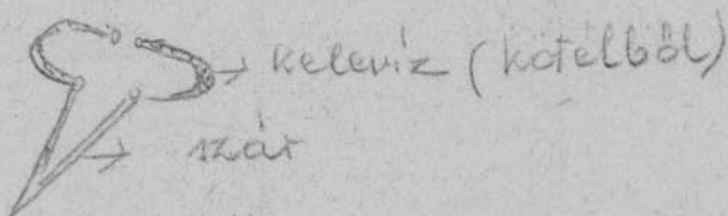 kelevíz (kötélből)
szár